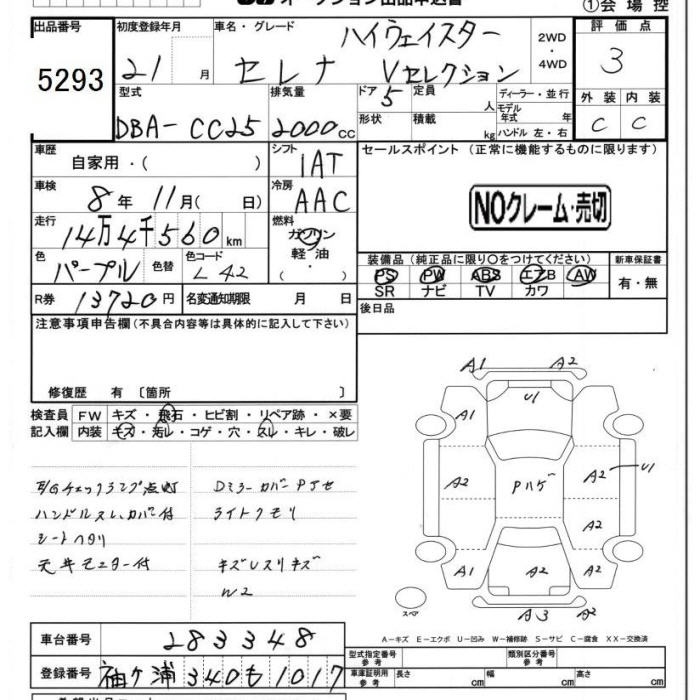 オークション出品申込書 ①会場控
出品番号 初度登録年月 車名・グレード 2WD・4WD 評価点
5293 21 月 セレナ ハイウェイスター Vセレクション 3
型式 排気量 ドア 定員 人 ディーラー・並行 外装 内装
DBA-CC25 2000cc 5 形状 積載 kg モデル年式 年 ハンドル 左・右 C C
車歴 自家用・( ) シフト IAT セールスポイント (正常に機能するものに限ります)
車検 8年 11月( 日) 冷房 AAC NOクレーム・売切
走行 14万4千560km 燃料 ガソリン 軽油 ( ・ )
色 パープル 色替 色コード L42 装備品 (純正品に限り○をつけてください) 新車保証書
PS PW ABS エアB AW 有・無
SR ナビ TV カワ
R券 13720円 名変通知期限 月 日 後日品
注意事項申告欄(不具合内容等は具体的に記入して下さい)
修復歴 有 〔箇所 〕
検査員 FW キズ・飛石・ヒビ割・リペア跡・×要
記入欄 内装 キズ・汚レ・コゲ・穴・スレ・キレ・破レ
E/Gチェックランプ点灯 Dミラーカバー
ハンドルスレ、カバー付 ライトクモリ
シートヘタリ
天井モニター付 キズUスリキズ
W2
A1 A2
A1 U1
A2 Pハゲ A2 U1
A2
A1 A2 A2
スペア A3 A2
A-キズ E-エクボ U-凹み W-補修跡 S-サビ C-腐食 XX-交換済
車台番号 283348 型式指定番号 参考 類別区分番号 参考
登録番号 袖ヶ浦 340も1017 車庫証明用 参考 長さ cm 幅 cm 高さ cm